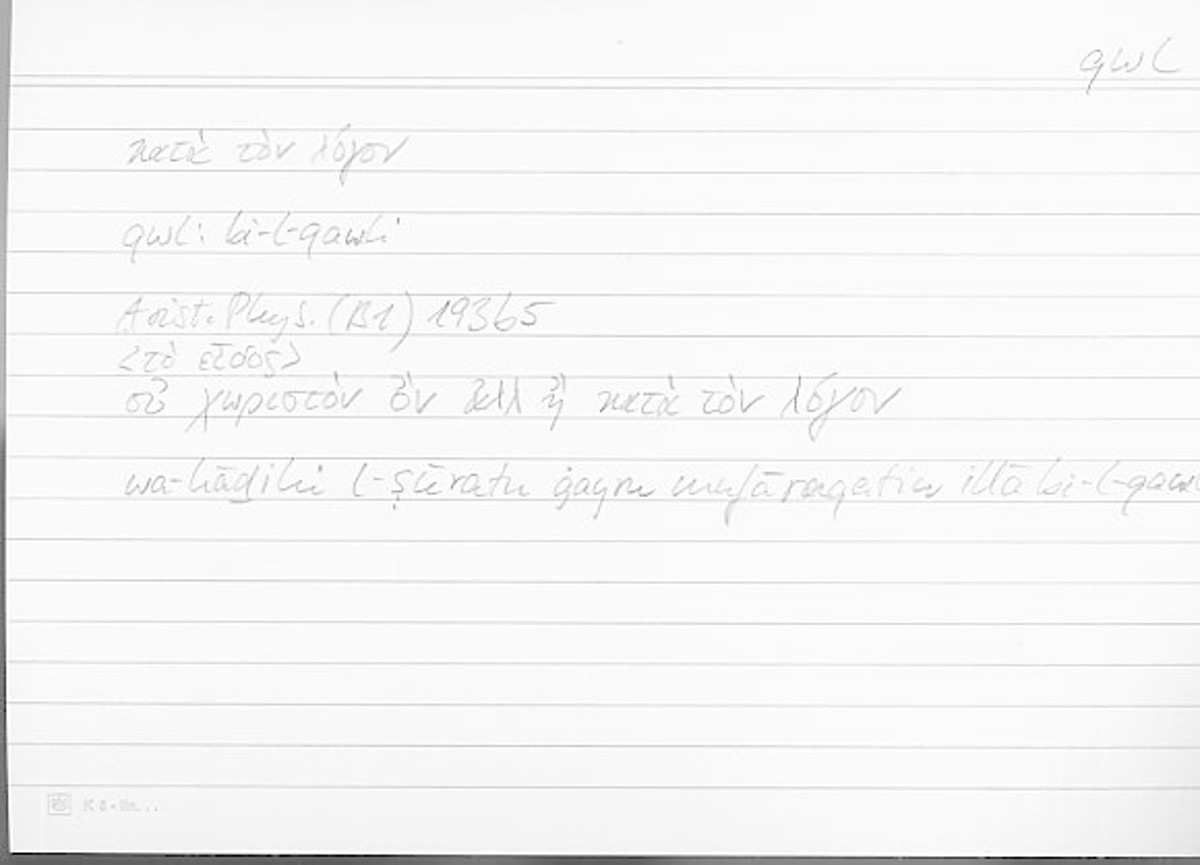 qwl
κατὰ τὸν λόγον
qwl: bi-l-qawli
Arist. Phys. (B1) 193b5
<τὸ εἶδος>
οὐ χωριστὸν ὂν ἀλλ ἢ κατὰ τὸν λόγον
wa-hāḏihi l-ṣūratu ġayru mufāraqatin illā bi-l-qawl